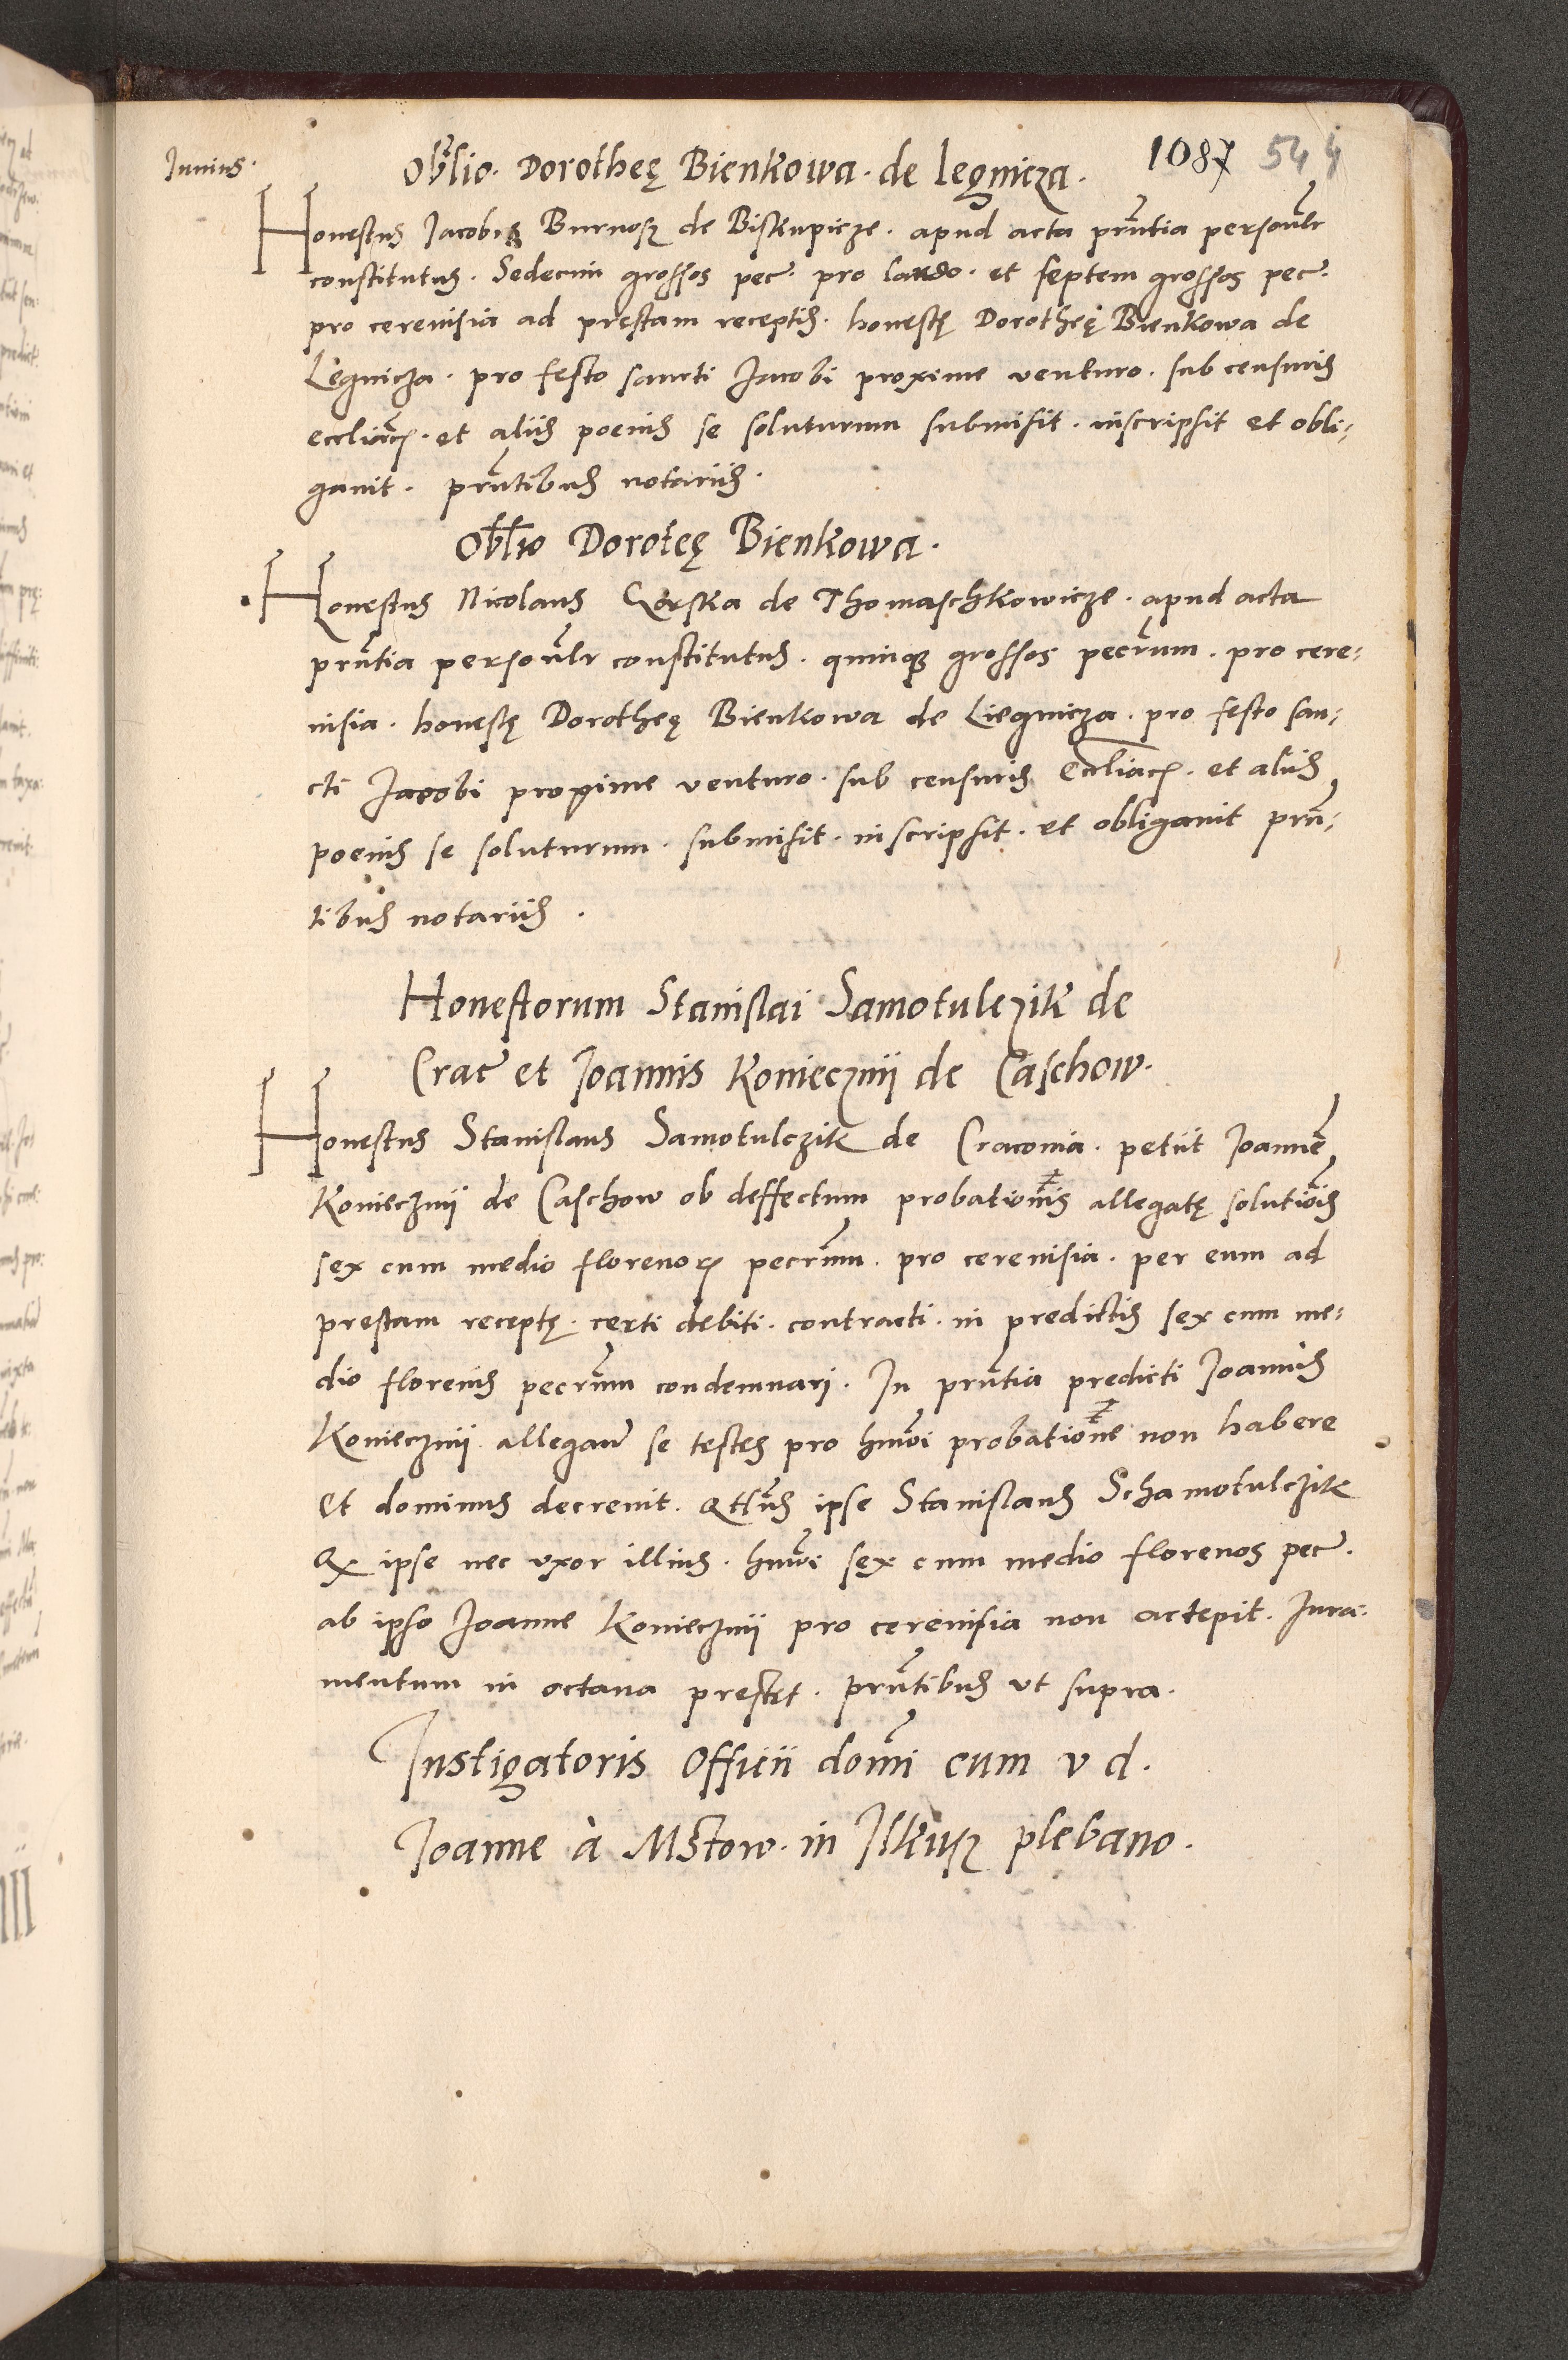 Junius.
1087 544
Obłlio. Dorotheę Bienkowa. de legnicza.
Honestus Jacobus Burnosz de Biskupicze. apud acta prñtia persoñlr
constitutus. Sedecim grossos pec̃. pro lardo. et septem grossos pec̃.
pro cerevisia ad prestam receptis. honestę Dorotheę Bienkowa de
Legnicza. pro festo sancti Jacobi proxime venturo. sub censuris
eccliãcꝝ. et aliis poenis se soluturum submisit. inscripsit et obli:
gauit. prñtibus notariis.
Obłlio Doroteę Bienkowa.
Honestus Nicolaus de Thomaschkowicze. apud acta
prñtia persoñlr constitutus. quinqꝫ grossos pecr̃um. pro cere:
uisia. honestę Dorotheę Bienkowa de Liegnicza. pro festo san:
cti Jacobi proxime venturo. sub censuris eccliãcꝝ. et aliis
poenis se soluturum. submisit. inscripsit. et obligauit prñ:
tibus notariis.
Honestorum Stanislai Samotulczik de
Crac̃ et Joannis Koniecznii de Caschow.
Honestus Stanislaus Samotulczik de Craconia. petiit Joannẽ
Konieczni̇i de Caschow ob deffectum probationis allegatę solutiõis
sex cum medio florenoꝝ pecr̃um. pro cerevisia. per eum ad
prestam receptę. certi debiti. contracti. in predictis sex cum me:
dio florenis pecr̃um condemnari. In prñtia predicti Joannis
Konieczni̇i allegañ se testes pro hm̃oi probatione non habere
Et dominus decrevit. qt̃us ipse Stanislaus Schamotulczik
Qꝫ ipse nec vxor illius. hm̃oi sex cum medio florenos pec̃.
ab ipso Joanne Konieczni̇i pro cerevisia non accepit. Jura:
mentum in octaua prestet. prñtibus vt supra.
Instigatoris Officii domĩ cum v d.
Joanne à Mstow. in Ilkusz plebano.